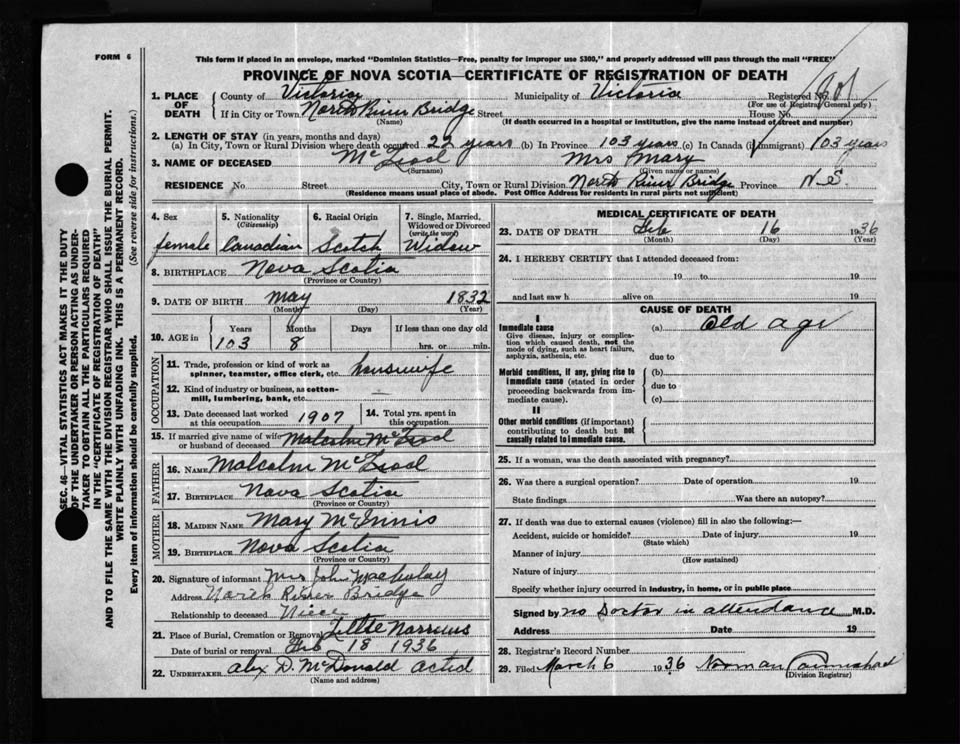 FORM 6
This form if placed in an envelope, marked "Dominion Statistics—Free, penalty for improper use $300," and properly addressed will pass through the mail "FREE"
PROVINCE OF NOVA SCOTIA—CERTIFICATE OF REGISTRATION OF DEATH
SEC. 46—VITAL STATISTICS ACT MAKES IT THE DUTY
OF THE UNDERTAKER OR PERSON ACTING AS UNDER-
TAKER TO OBTAIN ALL THE PARTICULARS REQUIRED
IN THE "CERTIFICATE OF REGISTRATION OF DEATH"
AND TO FILE THE SAME WITH THE DIVISION REGISTRAR WHO SHALL ISSUE THE BURIAL PERMIT.
WRITE PLAINLY WITH UNFADING INK. THIS IS A PERMANENT RECORD.
Every item of information should be carefully supplied. (See reverse side for instructions.)
1. PLACE OF DEATH County of Victoria Municipality of Victoria Registered No.
(For use of Registrar General only)
If in City or Town North River Bridge Street House No.
(Name) (If death occurred in a hospital or institution, give the name instead of street and number)
2. LENGTH OF STAY (in years, months and days)
(a) In City, Town or Rural Division where death occurred 22 years (b) In Province 103 years (c) In Canada (if immigrant) 103 years
3. NAME OF DECEASED McLeod Mrs Mary
(Surname) (Given name or names)
RESIDENCE No Street City, Town or Rural Division North River Bridge Province N.S.
(Residence means usual place of abode. Post Office Address for residents in rural parts not sufficient)
4. Sex 5. Nationality (Citizenship) 6. Racial Origin 7. Single, Married, Widowed or Divorced (write the word)
female Canadian Scotch Widow
8. BIRTHPLACE Nova Scotia
(Province or Country)
9. DATE OF BIRTH May 1832
(Month) (Day) (Year)
10. AGE in Years Months Days If less than one day old
103 8 hrs. or min.
OCCUPATION
11. Trade, profession or kind of work as spinner, teamster, office clerk, etc. housewife
12. Kind of industry or business, as cotton-mill, lumbering, bank, etc. —
13. Date deceased last worked at this occupation 1907 14. Total yrs. spent in this occupation
15. If married give name of wife or husband of deceased Malcolm McLeod
FATHER
16. NAME Malcolm McLeod
17. BIRTHPLACE Nova Scotia
(Province or Country)
MOTHER
18. MAIDEN NAME Mary McInnis
19. BIRTHPLACE Nova Scotia
(Province or Country)
20. Signature of informant Mrs John MacAulay
Address North River Bridge
Relationship to deceased Niece
21. Place of Burial, Cremation or Removal Little Narrows
Date of burial or removal Feb 18 1936
22. UNDERTAKER Alex D. McDonald acted
(Name and address)
MEDICAL CERTIFICATE OF DEATH
23. DATE OF DEATH Feb 16 1936
(Month) (Day) (Year)
24. I HEREBY CERTIFY that I attended deceased from:
19 to 19
and last saw h alive on 19
CAUSE OF DEATH
I
Immediate cause (a) Old age
Give disease, injury or complica-
tion which caused death, not the
mode of dying, such as heart failure,
asphyxia, asthenia, etc. due to
Morbid conditions, if any, giving rise to (b)
immediate cause (stated in order due to
proceeding backwards from im-
mediate cause). (c)
II
Other morbid conditions (if important)
contributing to death but not
causally related to immediate cause.
25. If a woman, was the death associated with pregnancy?
26. Was there a surgical operation? Date of operation 19
State findings Was there an autopsy?
27. If death was due to external causes (violence) fill in also the following:—
Accident, suicide or homicide? Date of injury 19
(State which)
Manner of injury
(How sustained)
Nature of injury
Specify whether injury occurred in industry, in home, or in public place
Signed by no Doctor in attendance M.D.
Address Date 19
28. Registrar's Record Number
29. Filed March 6 1936 Norman
(Division Registrar)